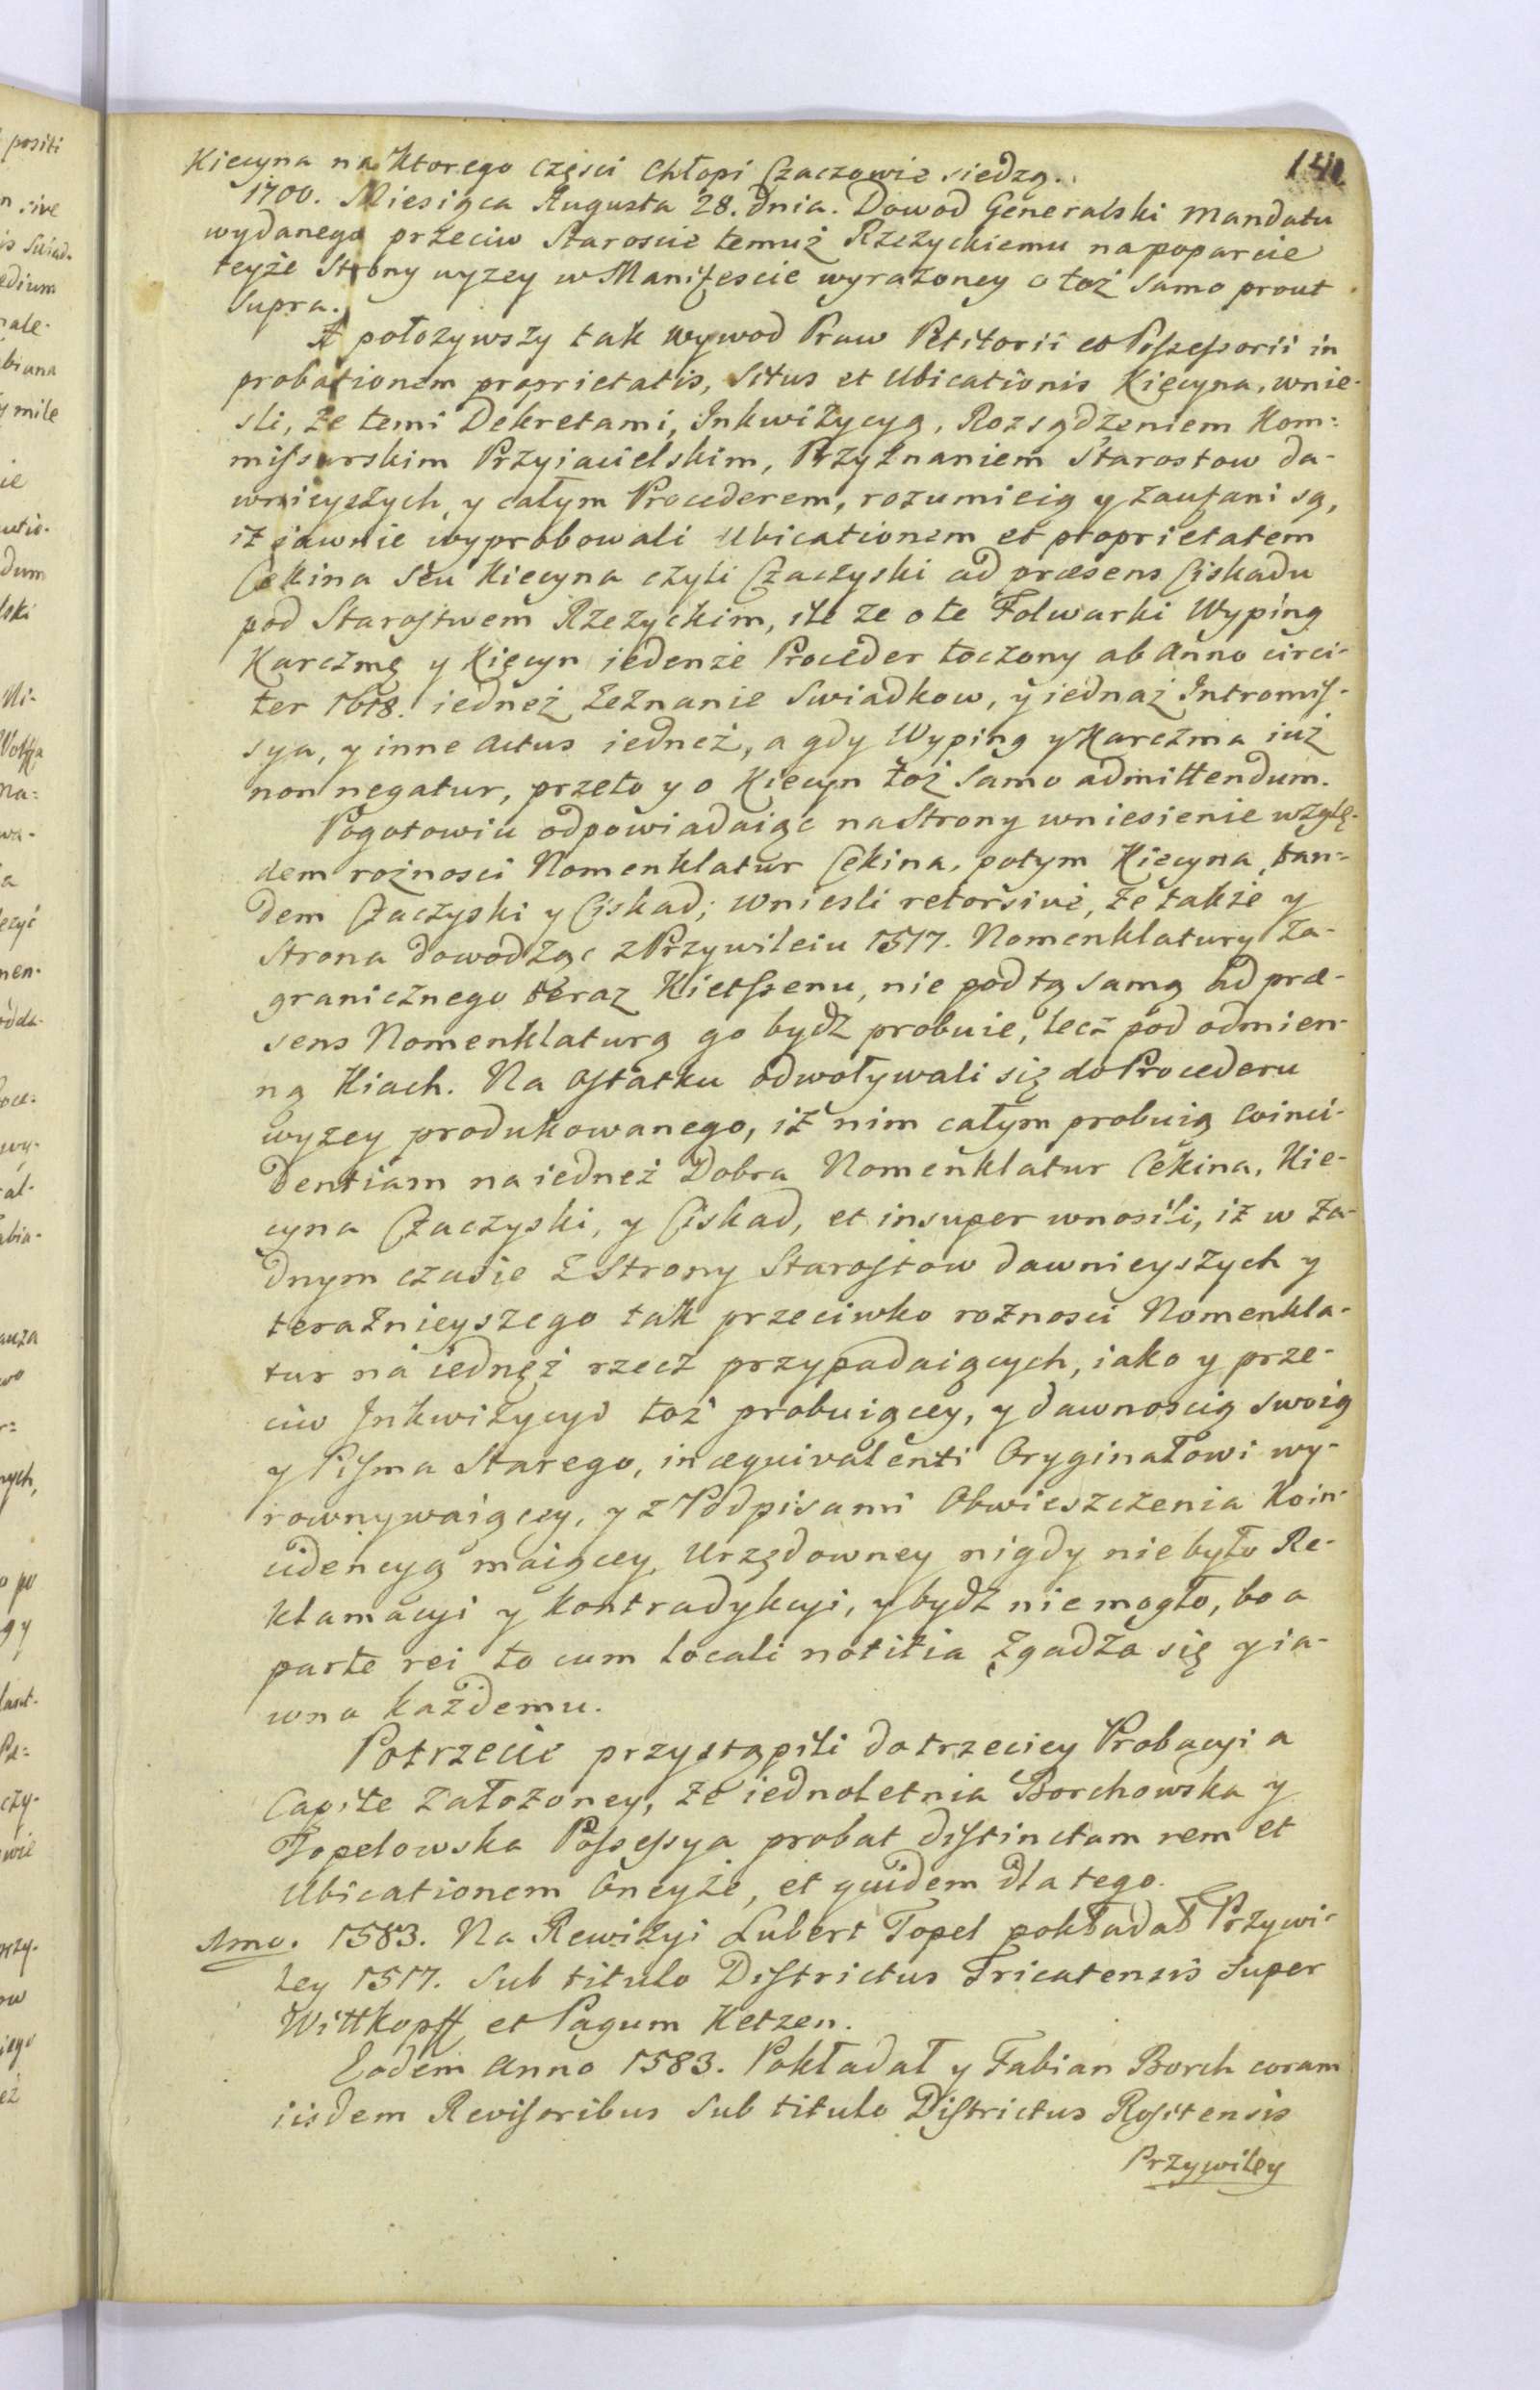 141
Kiecyna na ktorego częsci Chłopi Czaczowie siedzą.
1700. Miesiąca Augusta 28. dnia. Dowod Generalski mandatu
wydanego przeciw Staroscie temuż Rzeżyckiemu na poparcie
teyże Strony wyzey w Manifescie wyrażoney o toż samo prout
supra.
A położywszy tak wywod Praw Petitorii et Possessorii in
probationem proprietatis, situs et ubicationis Kięcyna, wnie-
sli, że temi Dekretami, Inkwiżycyą, Rozsądzeniem Kom=
missarskim Przyiacielskim, Przyżnaniem Starostow da-
wnieyszych, y całym Procederem, rozumieią y zaufani są,
iż iawnie wyprobowali Ubicationem et proprietatem
Cekina seu Kiecyna czyli Czaczyski ad præsens Ciskadu
pod Starostwem Rzeżyckim, ile że o te Folwarki Wyping
Karczmę y Kięcyn iedenże Proceder toczony ab Anno circi-
ter 1618. iedneż Zeżnanie Swiadkow, y iednaż Intromis-
sya, y inne Actus iedneż, a gdy Wyping y Karczma iuż
non negatur, przeto y o Kiecyn toż samo admittendum.
Pogotowiu odpowiadaiąc na Strony wniesienie wzglę-
dem rożnosci Nomenklatur Cekina, potym Kiecyna, tan=
dem Czaczyski y Ciskad; wniesli retorsivè, że także y
Strona dowodząc z Przywileiu 1517. Nomenklatury za-
granicznego teraz Kietssenu, nie pod tą samą ad præ-
sens Nomenklaturą go bydź probuie, lecz pod odmien-
ną Kiach. Na ostatku odwoływali się do Procederu
wyzey produkowanego, iż nim całym probuią coinci-
dentiam na iedneż Dobra Nomenklatur Cekina, Kie-
cyna Czaczyski, y Ciskad, et insuper wnosili, iż w ża-
dnym czasie z Strony Starostow dawnieyszych y
terażnieyszego tak przeciwko rożnosci Nomenkla-
tur na iednęż rzecz przypadaiących, iako y prze-
ciw Inkwiżycyi toż probuiącey, y dawnoscią swoią
y Pisma Starego, in æquivalenti Oryginałowi wy-
rownywaiącey, y z Podpisami Obwieszczenia Koin-
cidencyą maiącey, Urzędowney nigdy nie było Re-
klamacyi y kontradykcyi, y bydź nie mogło, bo a
parte rei to cum locali notitia zgadza się y ia-
wna każdemu.
Potrzecie przystąpili do trzeciey Probacyi a
Capite założoney, że iednoletnia Borchowska y
Topelowska Possessya probat distinctam rem et
Ubicationem oneyże, et quidem dla tego.
1mo. 1583. Na Rewiżyi Lubert Topel pokładał Przywi-
ley 1517. sub titulo Districtus Tricatensis super
Wittkopff et Pagum Ketzen.
Eodem Anno 1583. Pokładał y Fabian Borch coram
iisdem Revisoribus sub titulo Districtus Rositensis
Przywiley